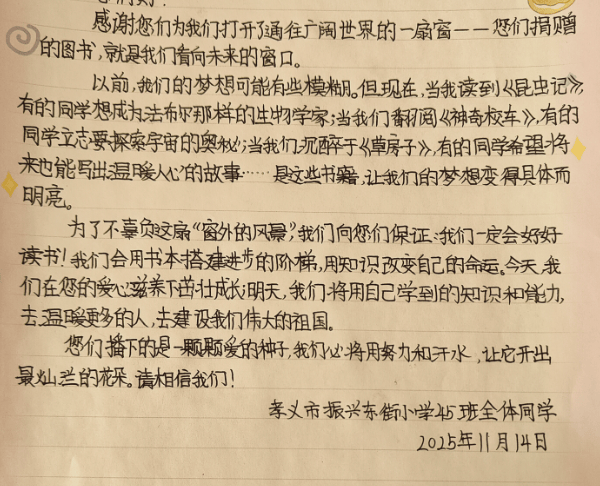 感谢您们为我们打开了通往广阔世界的一扇窗——您们捐赠
的图书,就是我们看向未来的窗口。
以前,我们的梦想可能有些模糊。但现在,当我读到《昆虫记》,
有的同学想成为法布尔那样的生物学家;当我们翻阅《神奇校车》,有的
同学立志要探索宇宙的奥秘;当我们沉醉于《草房子》,有的同学希望将
来也能写出温暖人心的故事……是这些书籍,让我们的梦想变得具体而
明亮。
为了不辜负这扇“窗外的风景”,我们向您们保证:我们一定会好好
读书!我们会用书本搭建进步的阶梯,用知识改变自己的命运。今天,我
们在您的爱心滋养下茁壮成长;明天,我们将用自己学到的知识和能力,
去温暖更多的人,去建设我们伟大的祖国。
您们播下的是一颗颗爱的种子,我们必将用努力和汗水,让它开出
最灿烂的花朵。请相信我们!
孝义市振兴东街小学45班全体同学
2025年11月14日